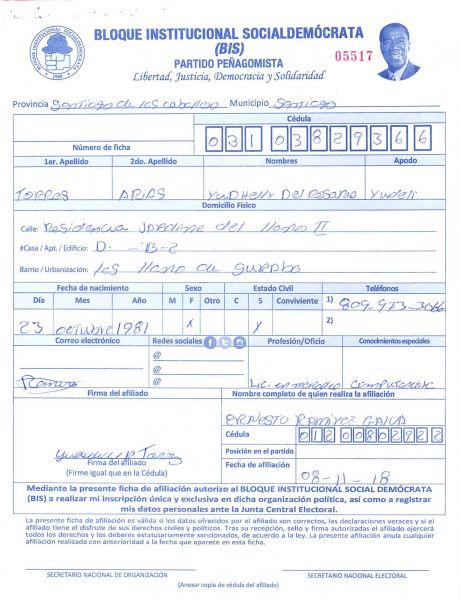 BLOQUE INSTITUCIONAL SOCIALDEMÓCRATA
(BIS)
05517
PARTIDO PEÑAGOMISTA
Libertad, Justicia, Democracia y Solidaridad
BLOQUE INSTITUCIONAL SOCIALDEMOCRATA
Provincia Santiago de los caballero Municipio Santiago
Cédula
Número de ficha 031 0382936 6
1er. Apellido 2do. Apellido Nombres Apodo
TORRES ARIAS Yudhelly Del Rosario Yudeli
Domicilio Físico
Calle: Residencia Jardine del llano II
#Casa / Apt. / Edificio: D. -B-2
Barrio / Urbanización: los llano de gurabo
Fecha de nacimiento Sexo Estado Civil Teléfonos
Día Mes Año M F Otro C S Conviviente 1) 809-973-3066
23 octubre 1981 X X 2)
Correo electrónico Redes sociales Profesión/Oficio Conocimientos especiales
@
@
Ramirez @ Lic. en
Firma del afiliado Nombre completo de quien realiza la afiliación
ERNESTO RAMIREZ
Cédula 01200802922
Posición en el partido
Firma del afiliado
(Firme igual que en la Cédula)
Fecha de afiliación 08-11-18
Mediante la presente ficha de afiliación autorizo al BLOQUE INSTITUCIONAL SOCIAL DEMÓCRATA
(BIS) a realizar mi inscripción única y exclusiva en dicha organización política, así como a registrar
mis datos personales ante la Junta Central Electoral.
La presente ficha de afiliación es válida si los datos ofrecidos por el afiliado son correctos, las declaraciones veraces y si el
afiliado tiene el disfrute de sus derechos civiles y políticos. Tras su recepción, sello y firma autorizados el afiliado ejercerá
todos los derechos y los deberes estatutariamente sancionados, de acuerdo a la ley. La presente afiliación anula cualquier
afiliación realizada con anterioridad a la fecha que aparece en esta ficha.
SECRETARIO NACIONAL DE ORGANIZACIÓN SECRETARIO NACIONAL ELECTORAL
(Anexar copia de cédula del afiliado)